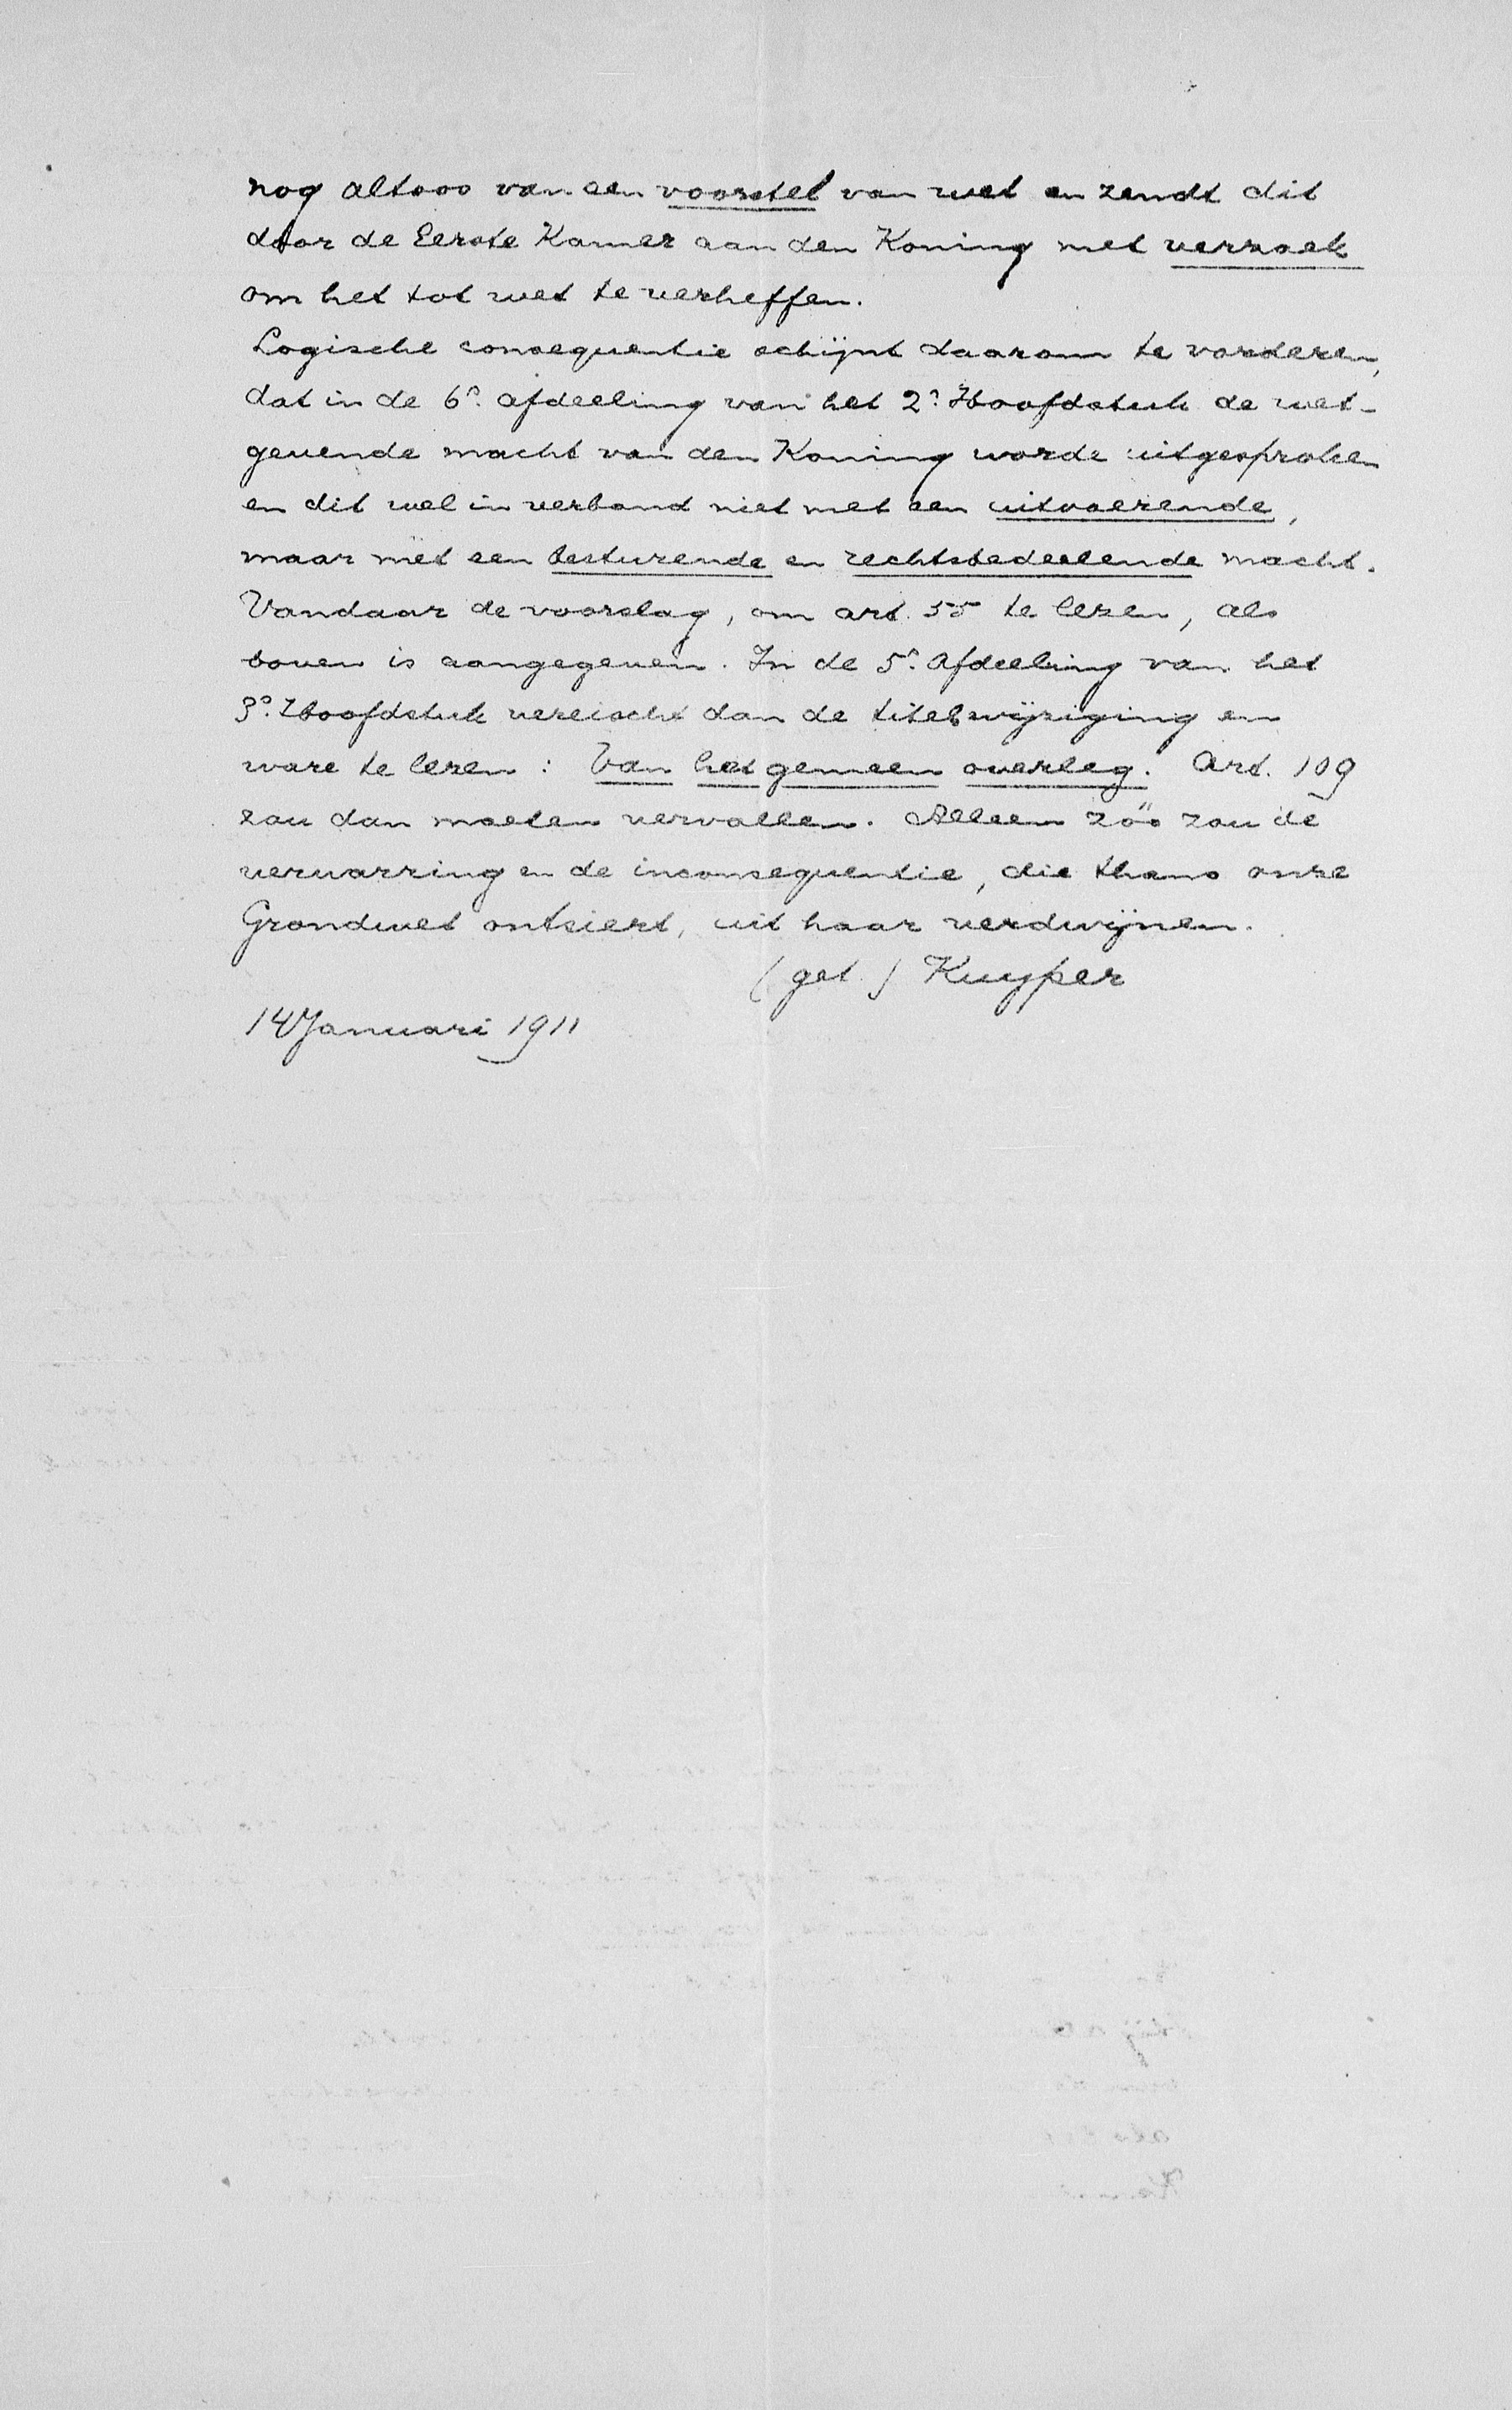 nog altoos van een voorstel van wet en zendt dit
door de Eerste Kamer aan den Koning met verzoek
om het tot wet te verheffen.
Logische consequentie schijnt daarom te vorderen,
dat in de 6e. afdeeling van het 2e. Hoofdstuk de wet-
gevende macht van den Koning worde uitgesproken
en dit wel in verband niet met een uitvoerende,
maar met een besturende en rechtsbedeelende macht.
Vandaar de voorslag, om art. 55 te lezen, als
boven is aangegeven. In de 5e. Afdeeling van het
3e. Hoofdstuk vereischt dan de titel wijziging en
ware te lezen: Van het gemeen overleg. Art. 109
zou dan moeten vervallen. Alleen zóó zou de
verwarring en de inconsequentie, die thans onze
Grondwet ontsiert, uit haar verdwijnen.
(get.) Kuyper
14 Januari 1911